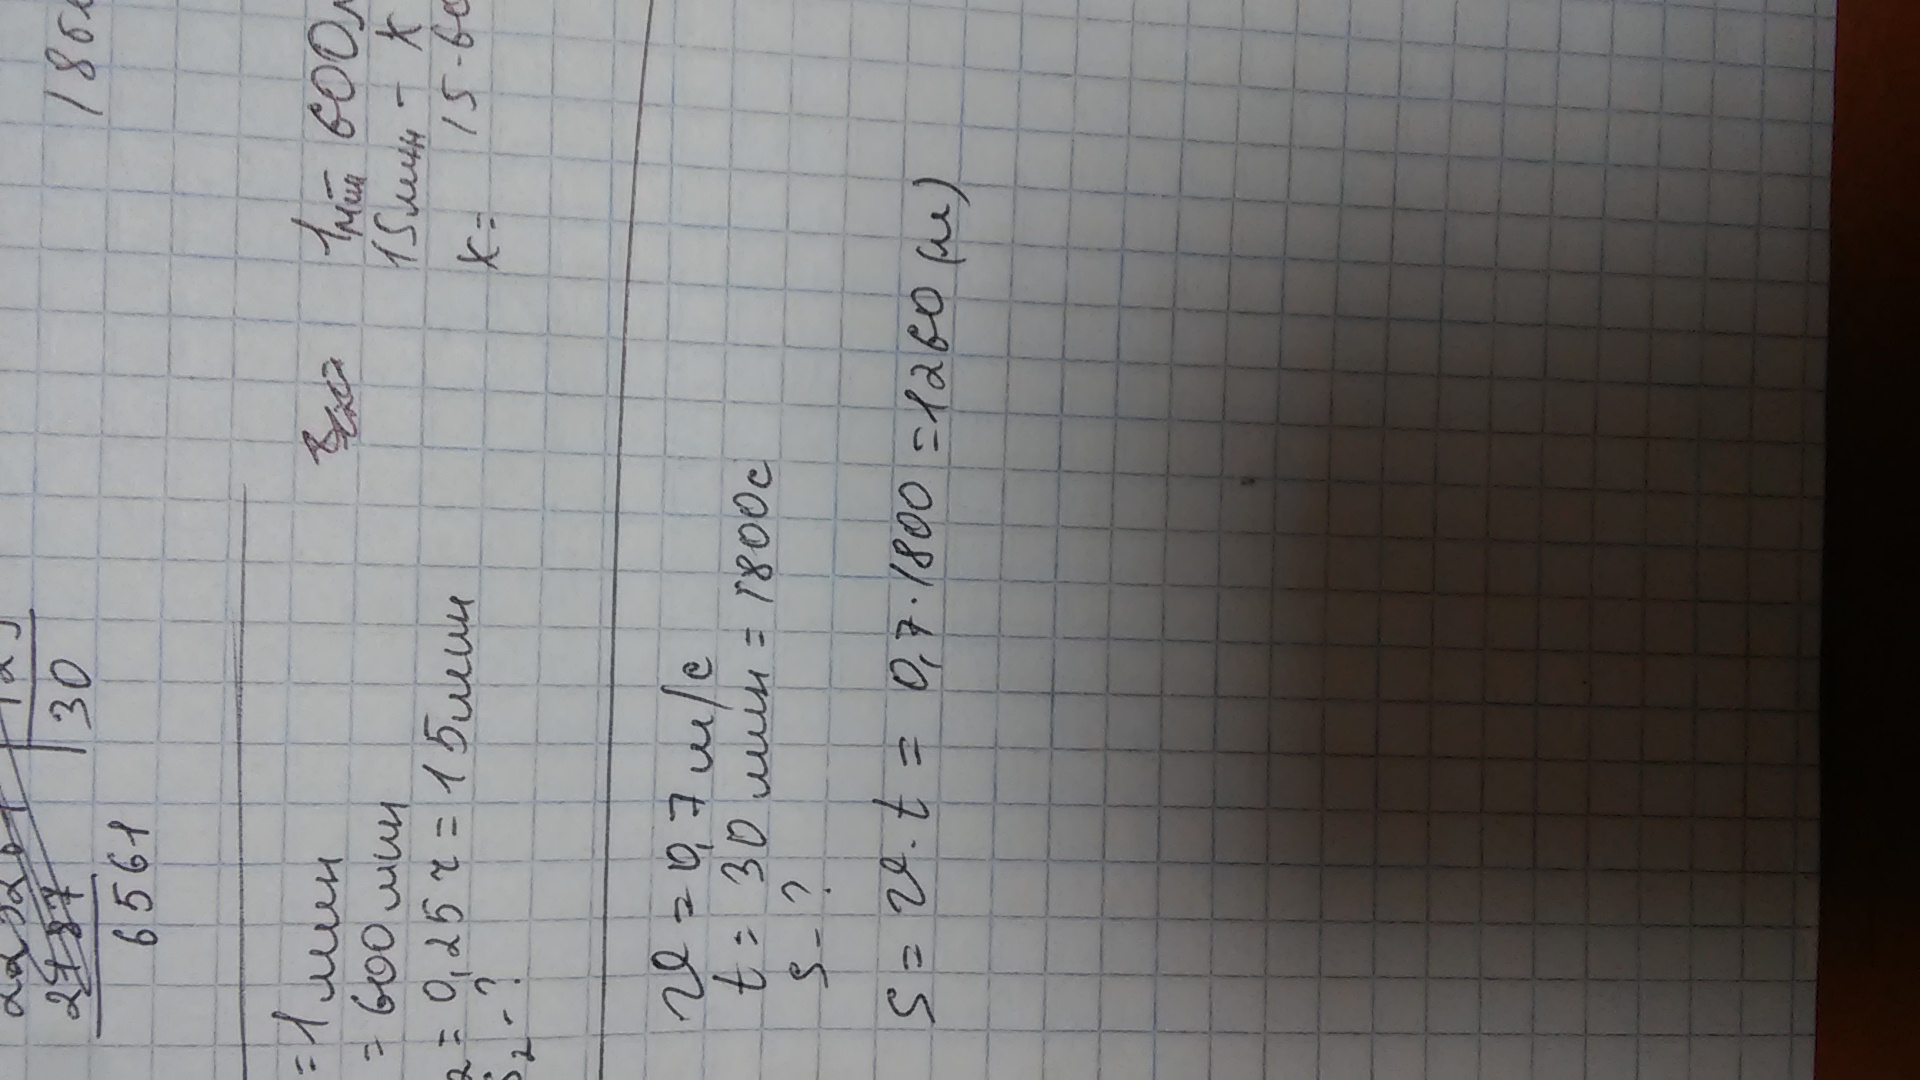 30
6561
186
= 1 мин
= 600 мин
2 = 0,25 ч = 15 мин
S₂ - ?
1 мин - 600
15 мин - x
x = 15 · 60
υ = 0,7 м/с
t = 30 мин = 1800 с
S - ?
S = υ · t = 0,7 · 1800 = 1260 (м)